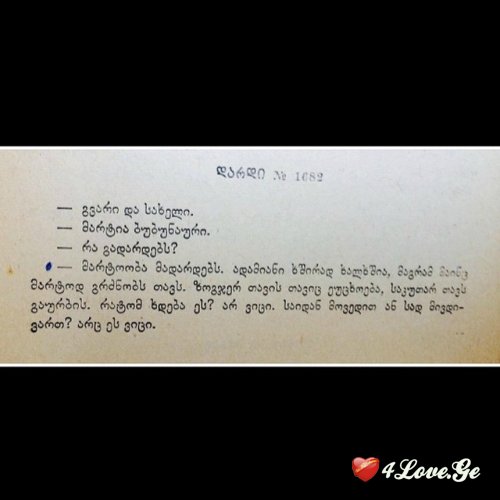 დარდი № 1682
— გვარი და სახელი.
— მარტია ბუბუნაური.
— რა გადარდებს?
— მარტოობა მადარდებს. ადამიანი ხშირად ხალხშია, მაგრამ მაინც
მარტოდ გრძნობს თავს. ზოგჯერ თავის თავიც ეუცხოება, საკუთარ თავს
გაურბის. რატომ ხდება ეს? არ ვიცი. საიდან მოვედით ან სად მივდი-
ვართ? არც ეს ვიცი.
4Love.Ge